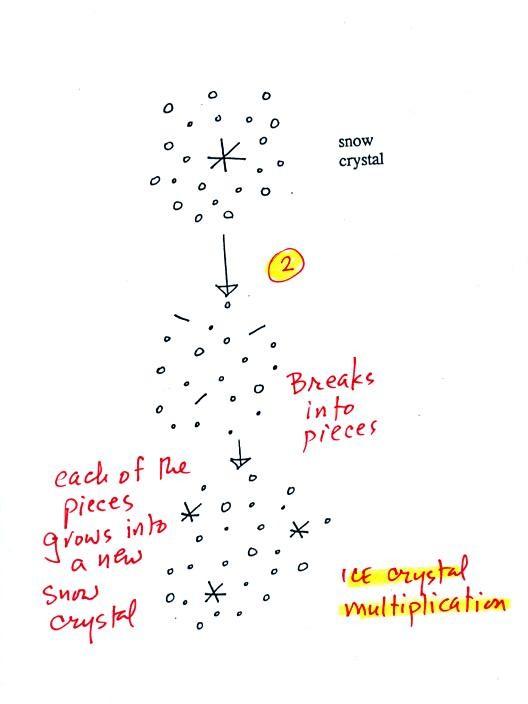 snow
crystal
2
Breaks
into
pieces
each of the
pieces
grows into
a new
snow
crystal
ICE crystal
multiplication